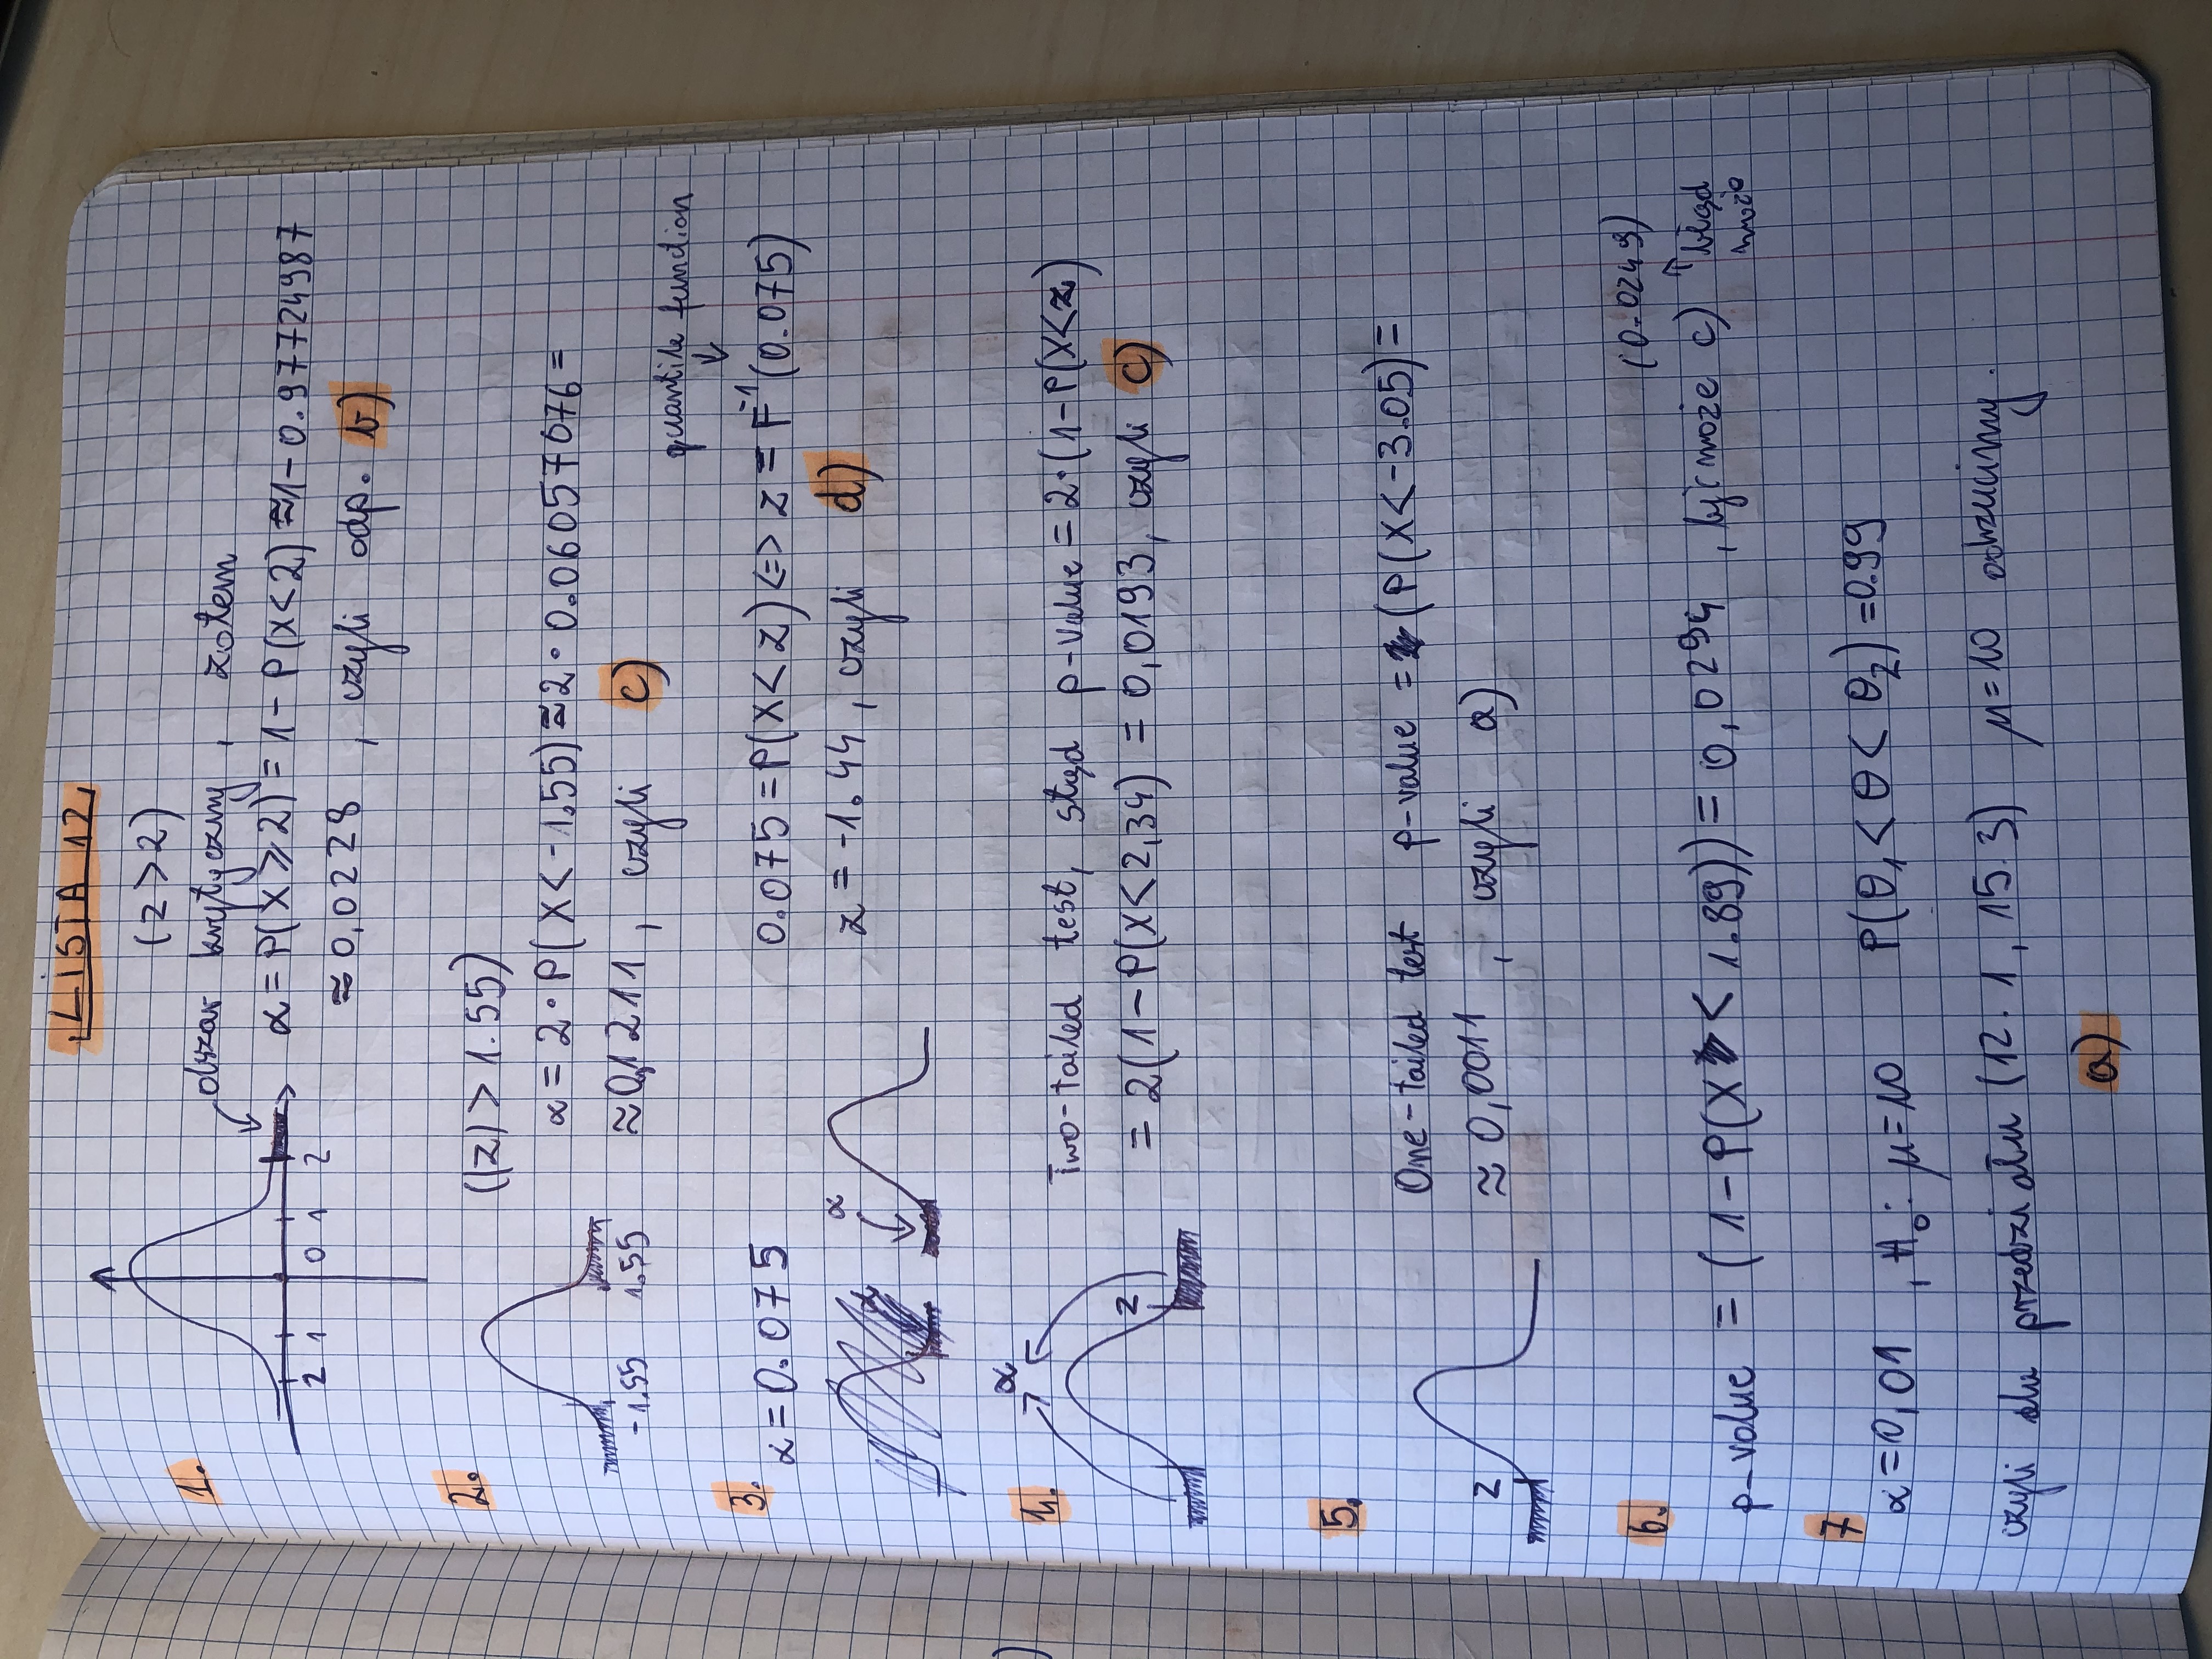 LISTA 12
1.
(z > 2)
obszar krytyczny, zatem
α = P(X ⩾ 2) = 1 - P(X < 2) ≈ 1 - 0.97724987
2 1 0 1 2
≈ 0,0228 , czyli odp. b)
2.
(|z| > 1.55)
α = 2 · P(X < -1.55) ≈ 2 · 0.06057076 =
-1.55 1.55
≈ 0,1211 , czyli c)
quantile function
3.
α = 0.075
0.075 = P(X < z) <=> z = F⁻¹(0.075)
α
z = -1.44 , czyli d)
4.
α
z
Two-tailed test, stąd p-value = 2·(1-P(X<z)
= 2(1 - P(X < 2,34) = 0,0193, czyli c)
5.
One-tailed test p-value = (P(X < -3.05) =
z
≈ 0,0011 , czyli a)
6.
(0.0249)
p-value = (1 - P(X < 1.89)) = 0,0294 , być może c) ↑ błąd
może
7
α = 0,01 , H₀: μ = 10 P(θ₁ < θ < θ₂) = 0.99
czyli dla przedziału (12.1, 15.3) μ = 10 odrzucimy.
a)